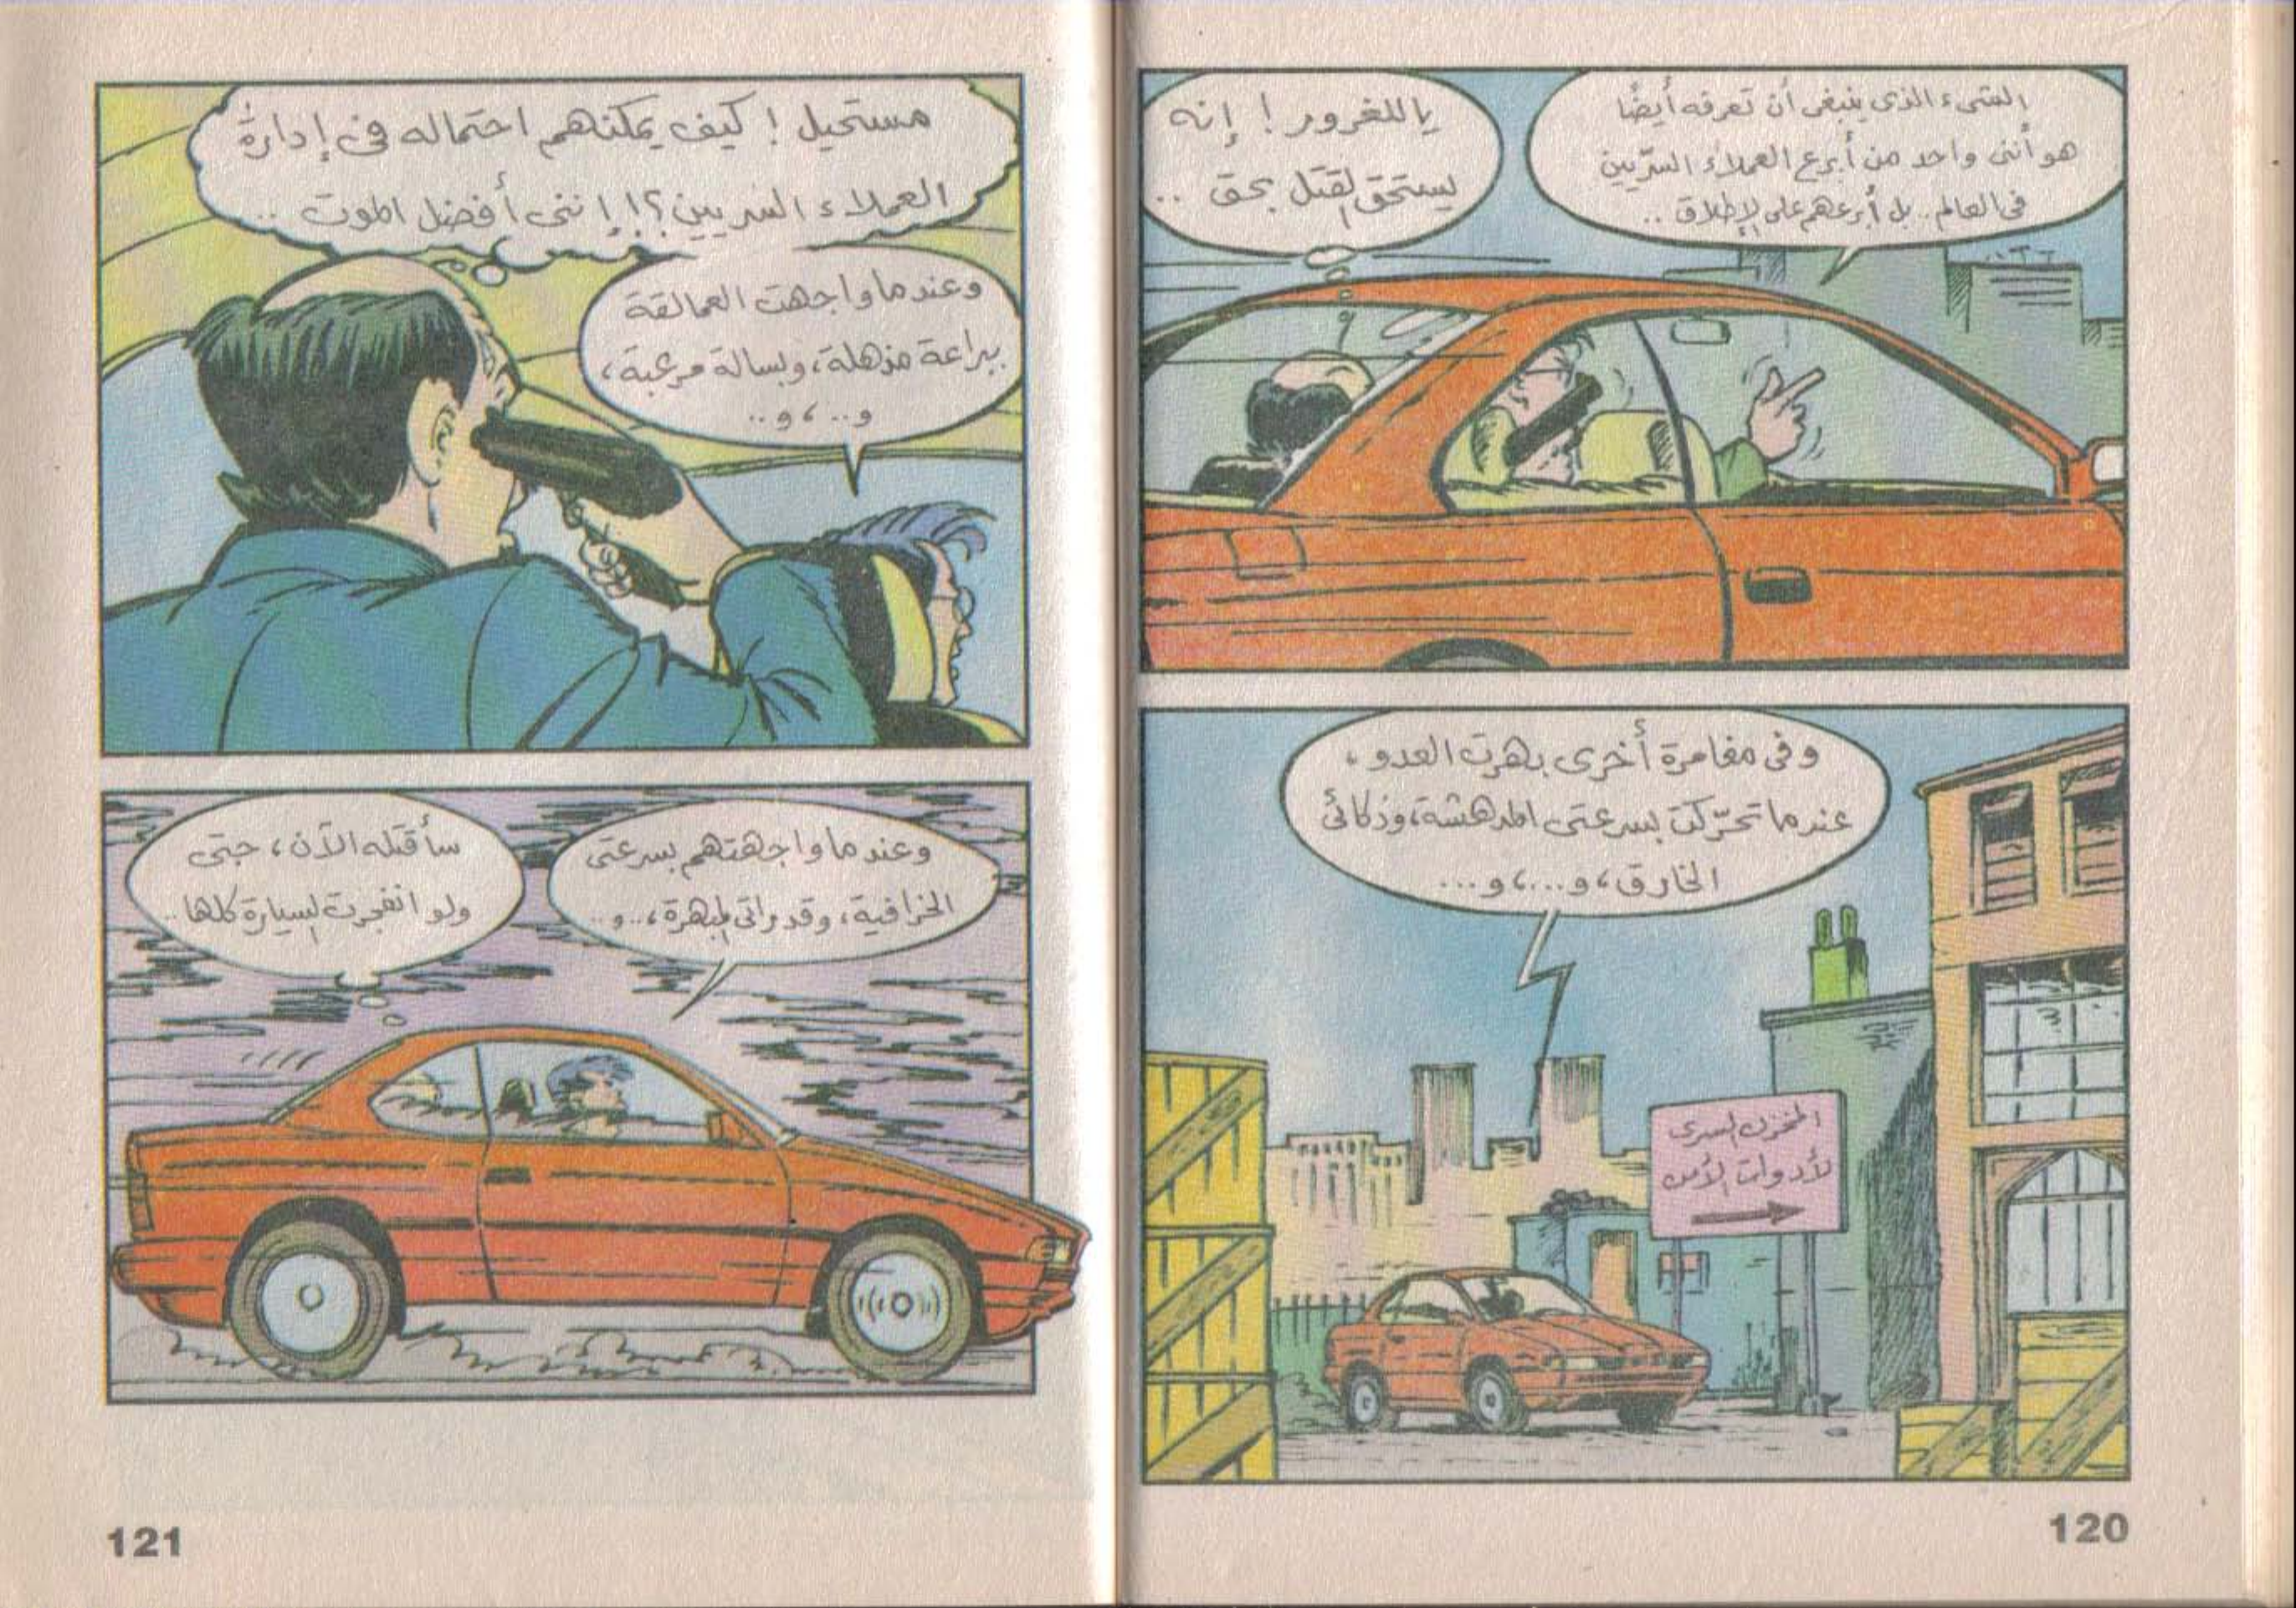 الشىء الذى ينبغى أن تعرفه أيضًا
هو أننى واحد من أبرع العملاء السرّيين
فى العالم.. بل أبرعهم على الإطلاق..
ياللغرور! إنه
يستحق القتل بحق..
وفى مغامرة أخرى بهرت العدو،
عندما تحرّكت بسرعتى المدهشة، وذكائى
الخارق، و...، و...
المخزن السرى
لأدوات الأمن
120
مستحيل! كيف يمكنهم احتماله فى إدارة
العملاء السريين؟! إننى أفضل الموت..
وعندما واجهت العمالقة
ببراعة مذهلة، وبسالة مرعبة،
و..، و..
وعندما واجهتهم بسرعتى
الخرافية، وقدراتى المبهرة،..و..
سأقتله الآن، حتى
ولو انفجرت السيارة كلها..
121